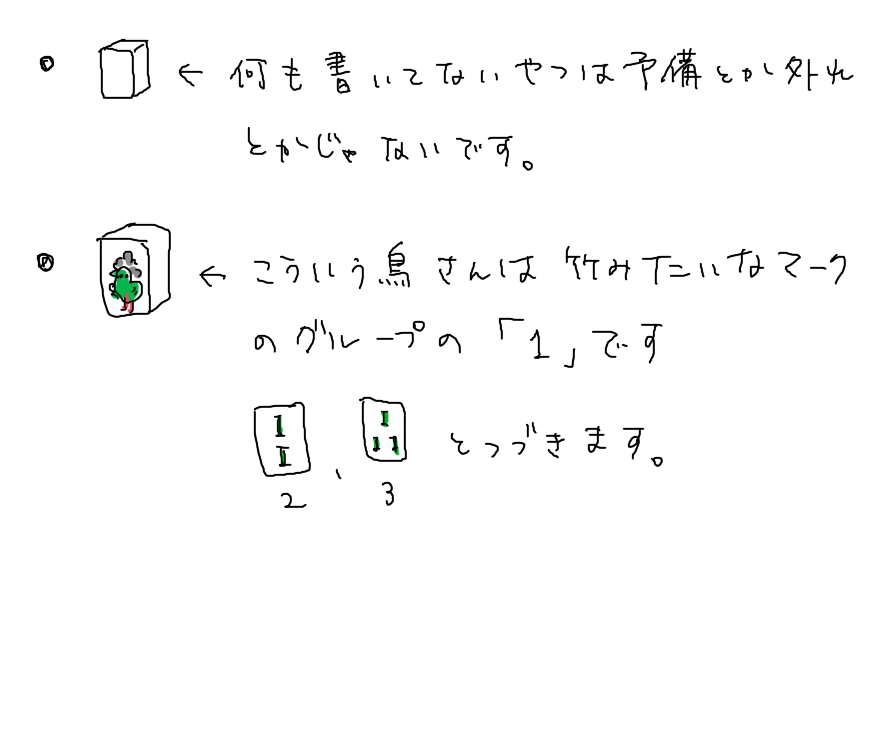 ← 何も書いてないやつは予備とか外れ
とかじゃないです。
← こういう鳥さんは竹みたいなマーク
のグループの「1」です
、 とつづきます。
2 3